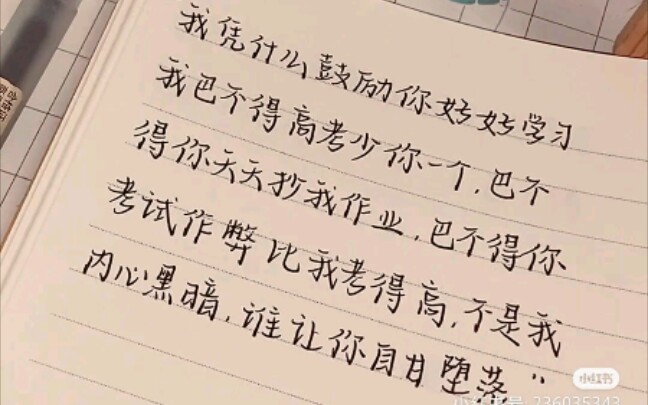 我凭什么鼓励你好好学习
我巴不得高考少你一个,巴不
得你天天抄我作业,巴不得你
考试作弊比我考得高,不是我
内心黑暗,谁让你自甘堕落"
小红书
小红书号: 236035343